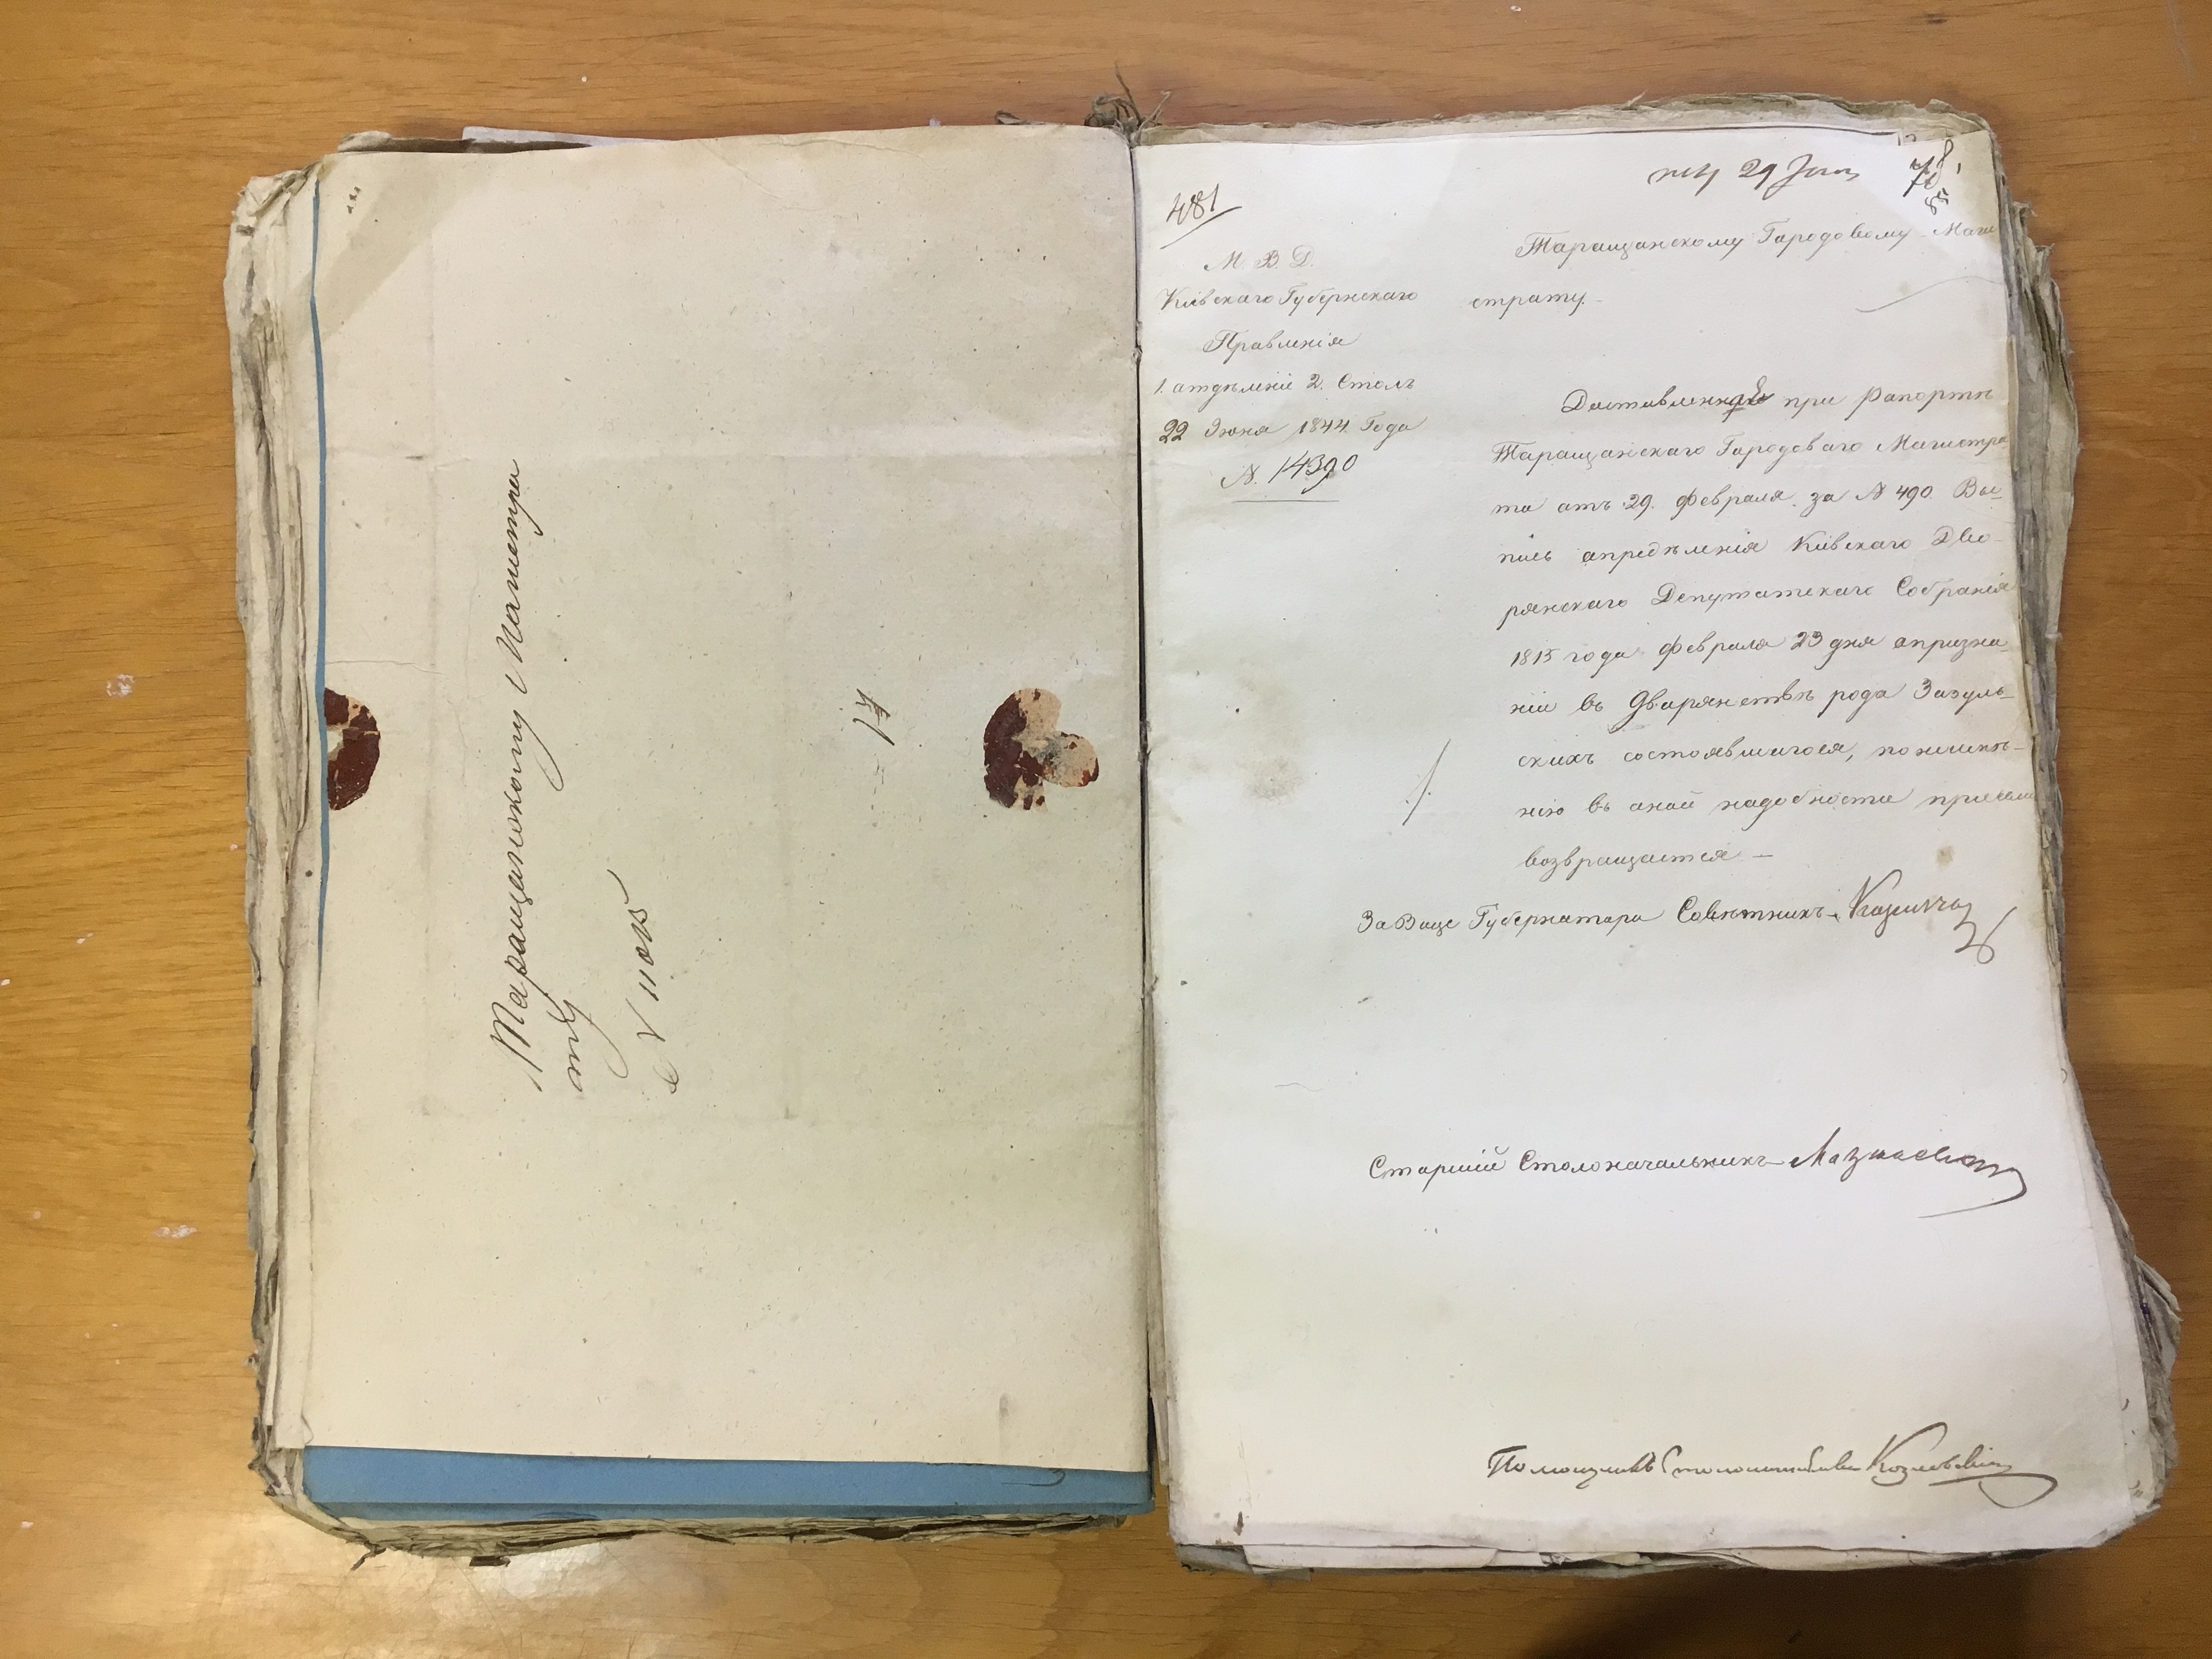 Таращанскому Магистра
ту
№ 11015
17
481
29
М. В. Д.
Кіевскаго Губернскаго
Правленія
1. отдѣленіе 2. Столъ
22 Іюня 1844. Года
N. 14390
Таращанскому Городовому Маги
страту.-
Доставленная при рапортѣ
Таращанскаго Городоваго Магистра
та отъ 29. февраля за № 490. Вы-
пись опредѣленія Кіевскаго Дво-
рянскаго Депутатскаго Собранія
1815 года февраля 23 дня опризна
ніи въ дворянствѣ рода Зазуль-
скихъ состоявшагося, по неимѣ-
нію въ оной надобности при семъ
возвращается. —
За Вице Губернатора Совѣтникъ
Старшій Столоначальникъ
Помощникъ Столоначальника